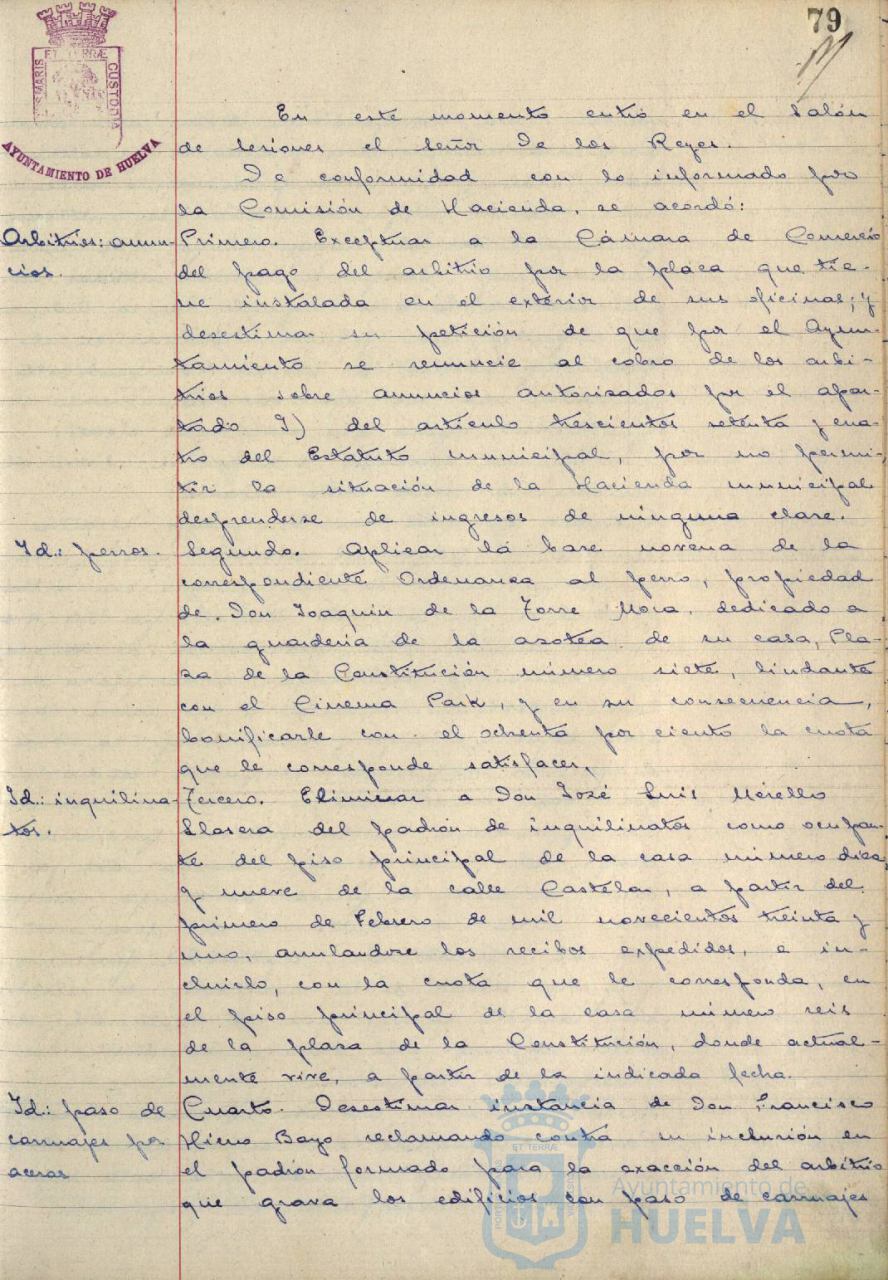 79
ET TERRÆ
MARIS
CUSTODIA
AYUNTAMIENTO DE HUELVA
En este momento entró en el Salón
de sesiones el Señor De los Reyes.
De conformidad con lo informado por
la Comisión de Hacienda, se acordó:
Arbitrios: anun-
cios.
Primero. Exceptuar a la Cámara de Comercio
del pago del arbitrio por la placa que tie-
ne instalada en el exterior de sus oficinas; y
desestimar su petición de que por el Ayun-
tamiento se renuncie al cobro de los arbi-
trios sobre anuncios autorizados por el apar-
tado I) del artículo trescientos setenta y cua-
tro del Estatuto municipal, por no permi-
tir la situación de la Hacienda municipal
desprenderse de ingresos de ninguna clase.
Id.: perros.
Segundo. Aplicar la base novena de la
correspondiente Ordenanza al perro, propiedad
de Don Joaquín de la Torre Mora, dedicado a
la guardería de la azotea de su casa, Pla-
za de la Constitución número siete, lindante
con el Cinema Park, y en su consecuencia,
bonificarle con el ochenta por ciento la cuota
que le corresponde satisfacer.
Id.: inquilina-
tos.
Tercero. Eliminar a Don José Luis Morello
Llasera del padrón de inquilinatos como ocupan-
te del piso principal de la casa número diez
y nueve de la calle Castelar, a partir del
primero de Febrero de mil novecientos treinta y
uno, anulandose los recibos expedidos, e in-
cluirlo, con la cuota que le corresponda, en
el piso principal de la casa número seis
de la plaza de la Constitución, donde actual-
mente vive, a partir de la indicada fecha.
Id.: paso de
carruajes por
aceras
Cuarto. Desestimar instancia de Don Francisco
Hierro Bayo reclamando contra su inclusión en
el padrón formado para la exacción del arbitrio
que grava los edificios con paso de carruajes
ET TERRÆ
Ayuntamiento de
HUELVA